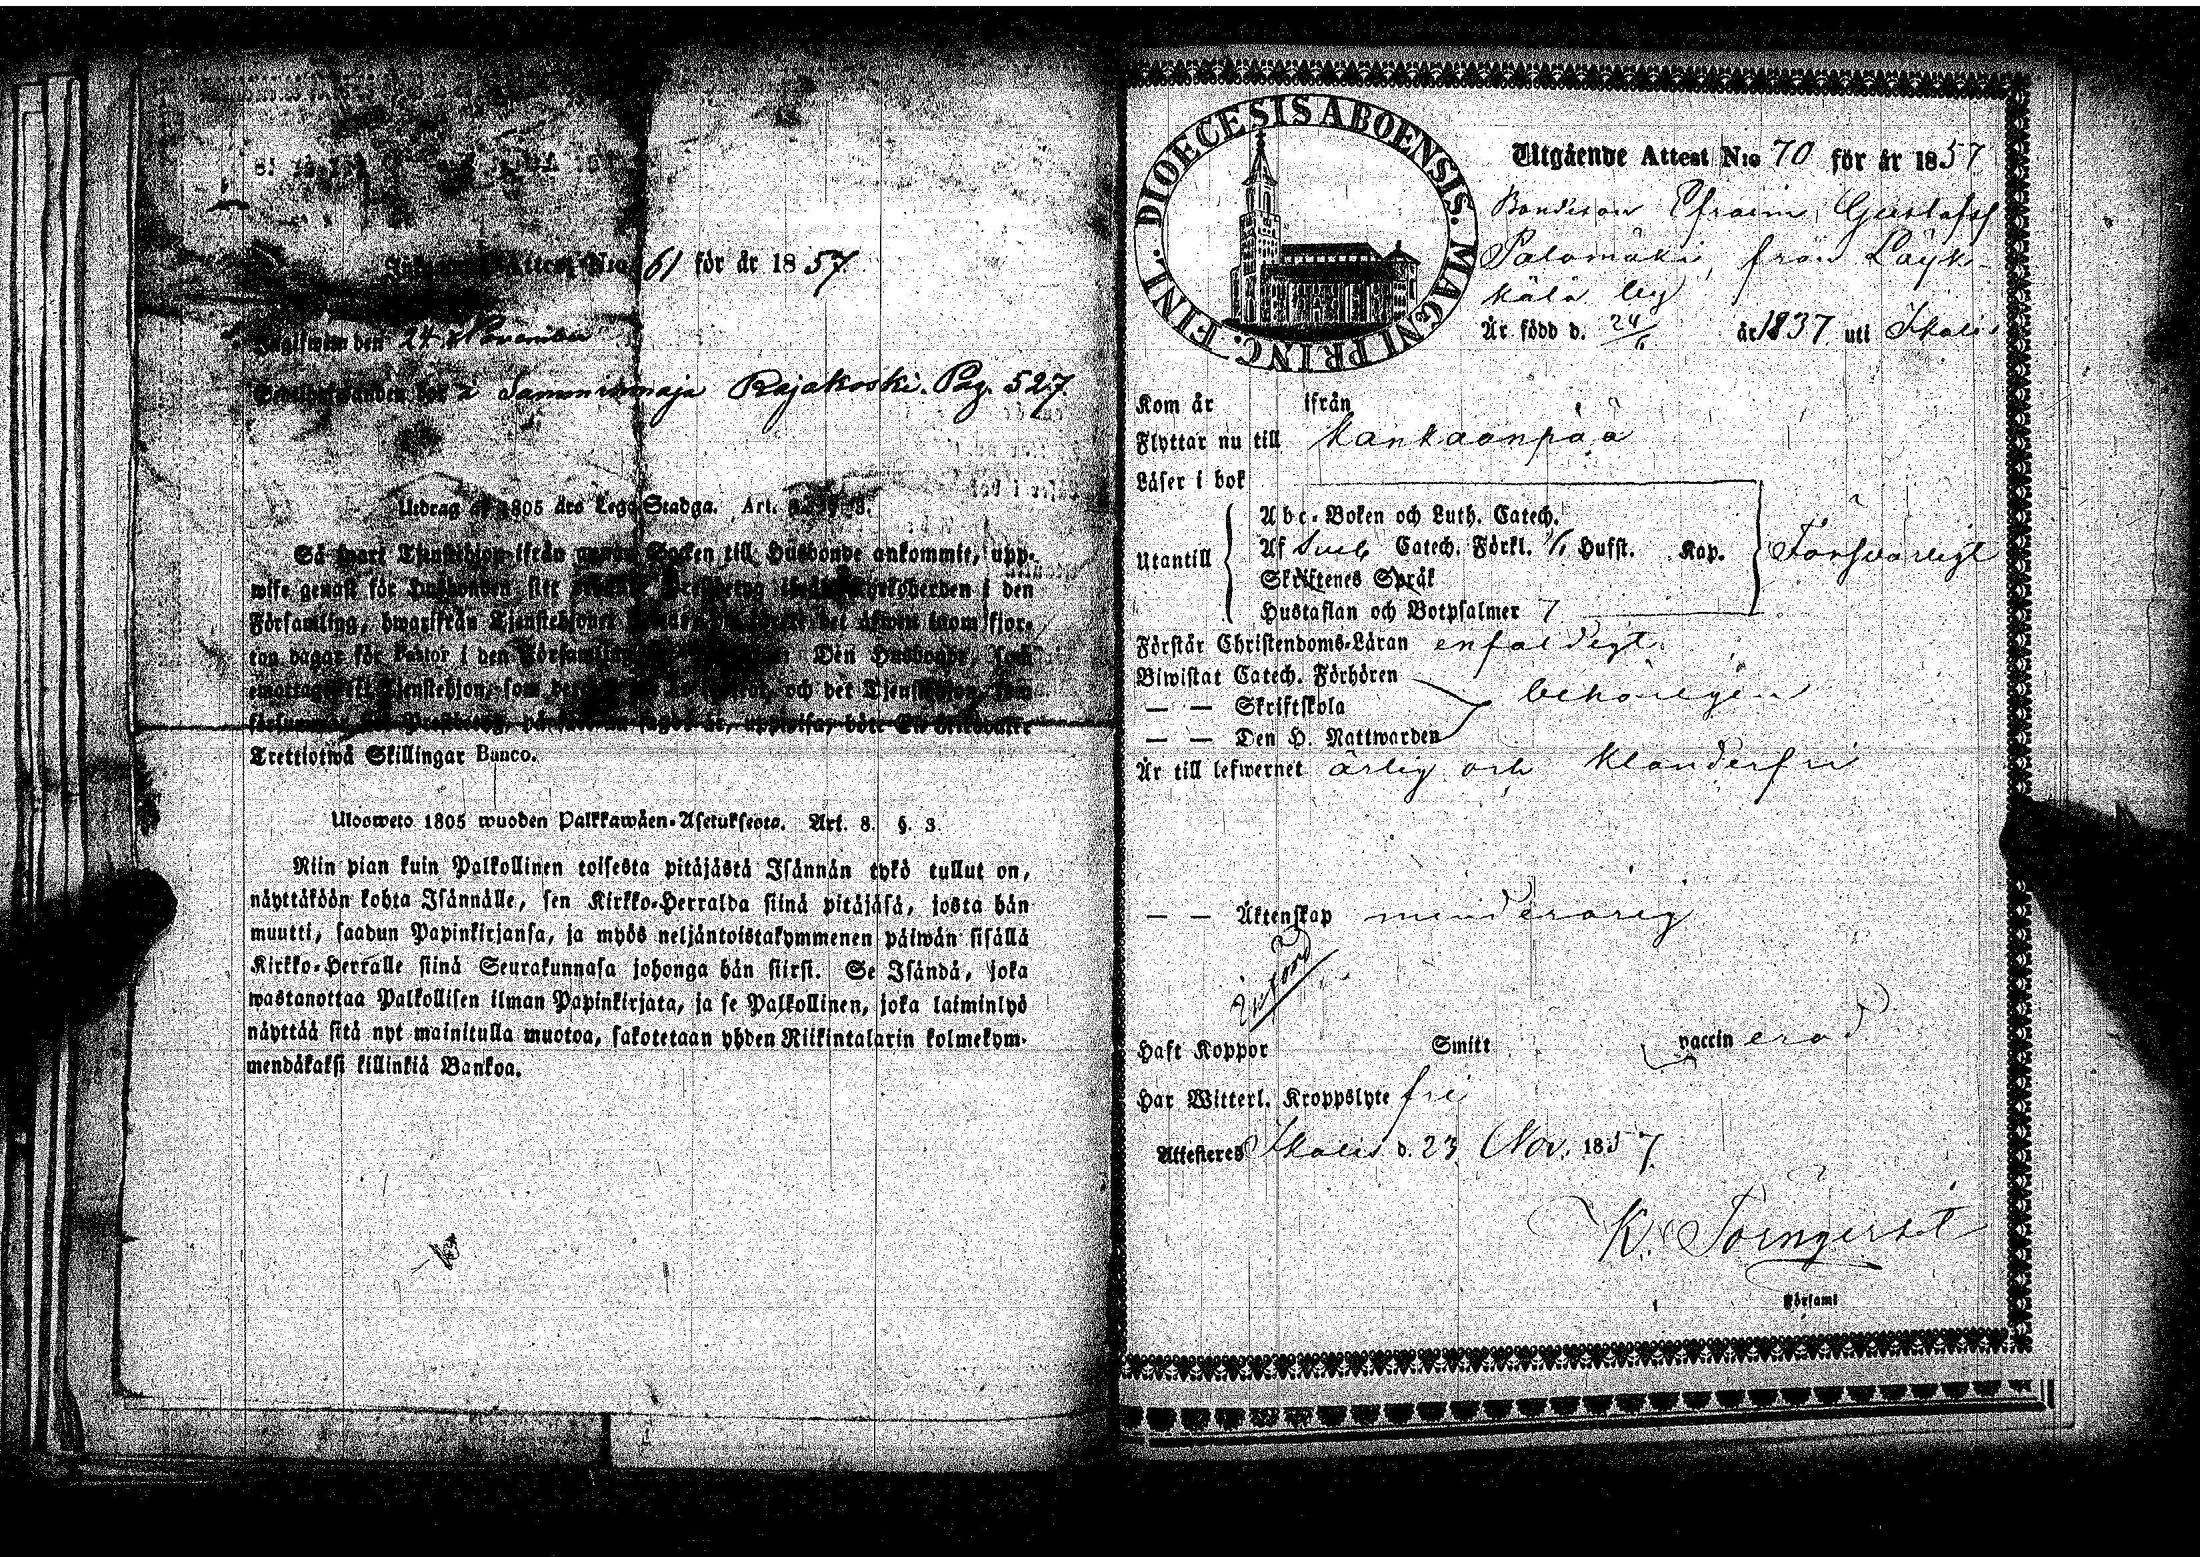 Attest N:o 61 för år 1857.
den 24 November
Sammimaja Rajakoski. Pag. 527.
Utdrag af 1805 års Lego-Stadga. Art. §. 3.
Så snart Tjenstehjon ifrån annan Socken till Husbonde ankommit, upp-
wise genast för Husbonden sitt Kyrkoherden i den
Församling, hwarifrån Tjenstehjonet inom fjor-
ton dagar för Pastor i den Den Husbonde, som
emottager ett Tjenstehjon, och det Tjenstehjon, som
Trettiotwå Skillingar Banco.
Ulosweto 1805 wuoden Palkkawäen-Asetuksesta. Art. 8. §. 3.
Niin pian kuin Palkollinen toisesta pitäjästä Isännän tykö tullut on,
näyttäköön kohta Isännälle, sen Kirkko-Herralda siinä pitäjäsä, josta hän
muutti, saadun Papinkirjansa, ja myös neljäntoistakymmenen päiwän sisällä
Kirkko-Herralle siinä Seurakunnasa johonga hän siirsi. Se Isändä, joka
wastanottaa Palkollisen ilman Papinkirjata, ja se Palkollinen, joka laiminlyö
näyttää sitä nyt mainitulla muotoa, sakotetaan yhden Riikintalarin kolmekym-
mendäkaksi killinkiä Bankoa.
DIOECESIS ABOENSIS. MAGNI PRINC. FINL.
Utgående Attest N:o 70 för år 1857
Bondeson Efraim Gustafss
Palomäki, från Läyk-
kälä by
År född d. 24/11 år 1837 uti Ikalis
Kom år ifrån
Flyttar nu till Kankaanpää
Läser i bok
Utantill
Abc-Boken och Luth. Catech.
Af Sveb Catech. Förkl. 1/1 Husst. Kap.
Försvarligt
Skriftenes Språk
Hustaflan och Botpsalmer 7
Förstår Christendoms-Läran enfaldigt
Biwistat Catech. Förhören
— — Skriftskola
behörigen
— — Den H. Nattwarden
Är till lefwernet ärlig och klanderfri
— — Äktenskap minderårig
Införd
Haft Koppor Smitt vaccin erad
Har Witterl. Kroppslyte fri
Attesteres Ikalis d. 23 Nov. 1857.